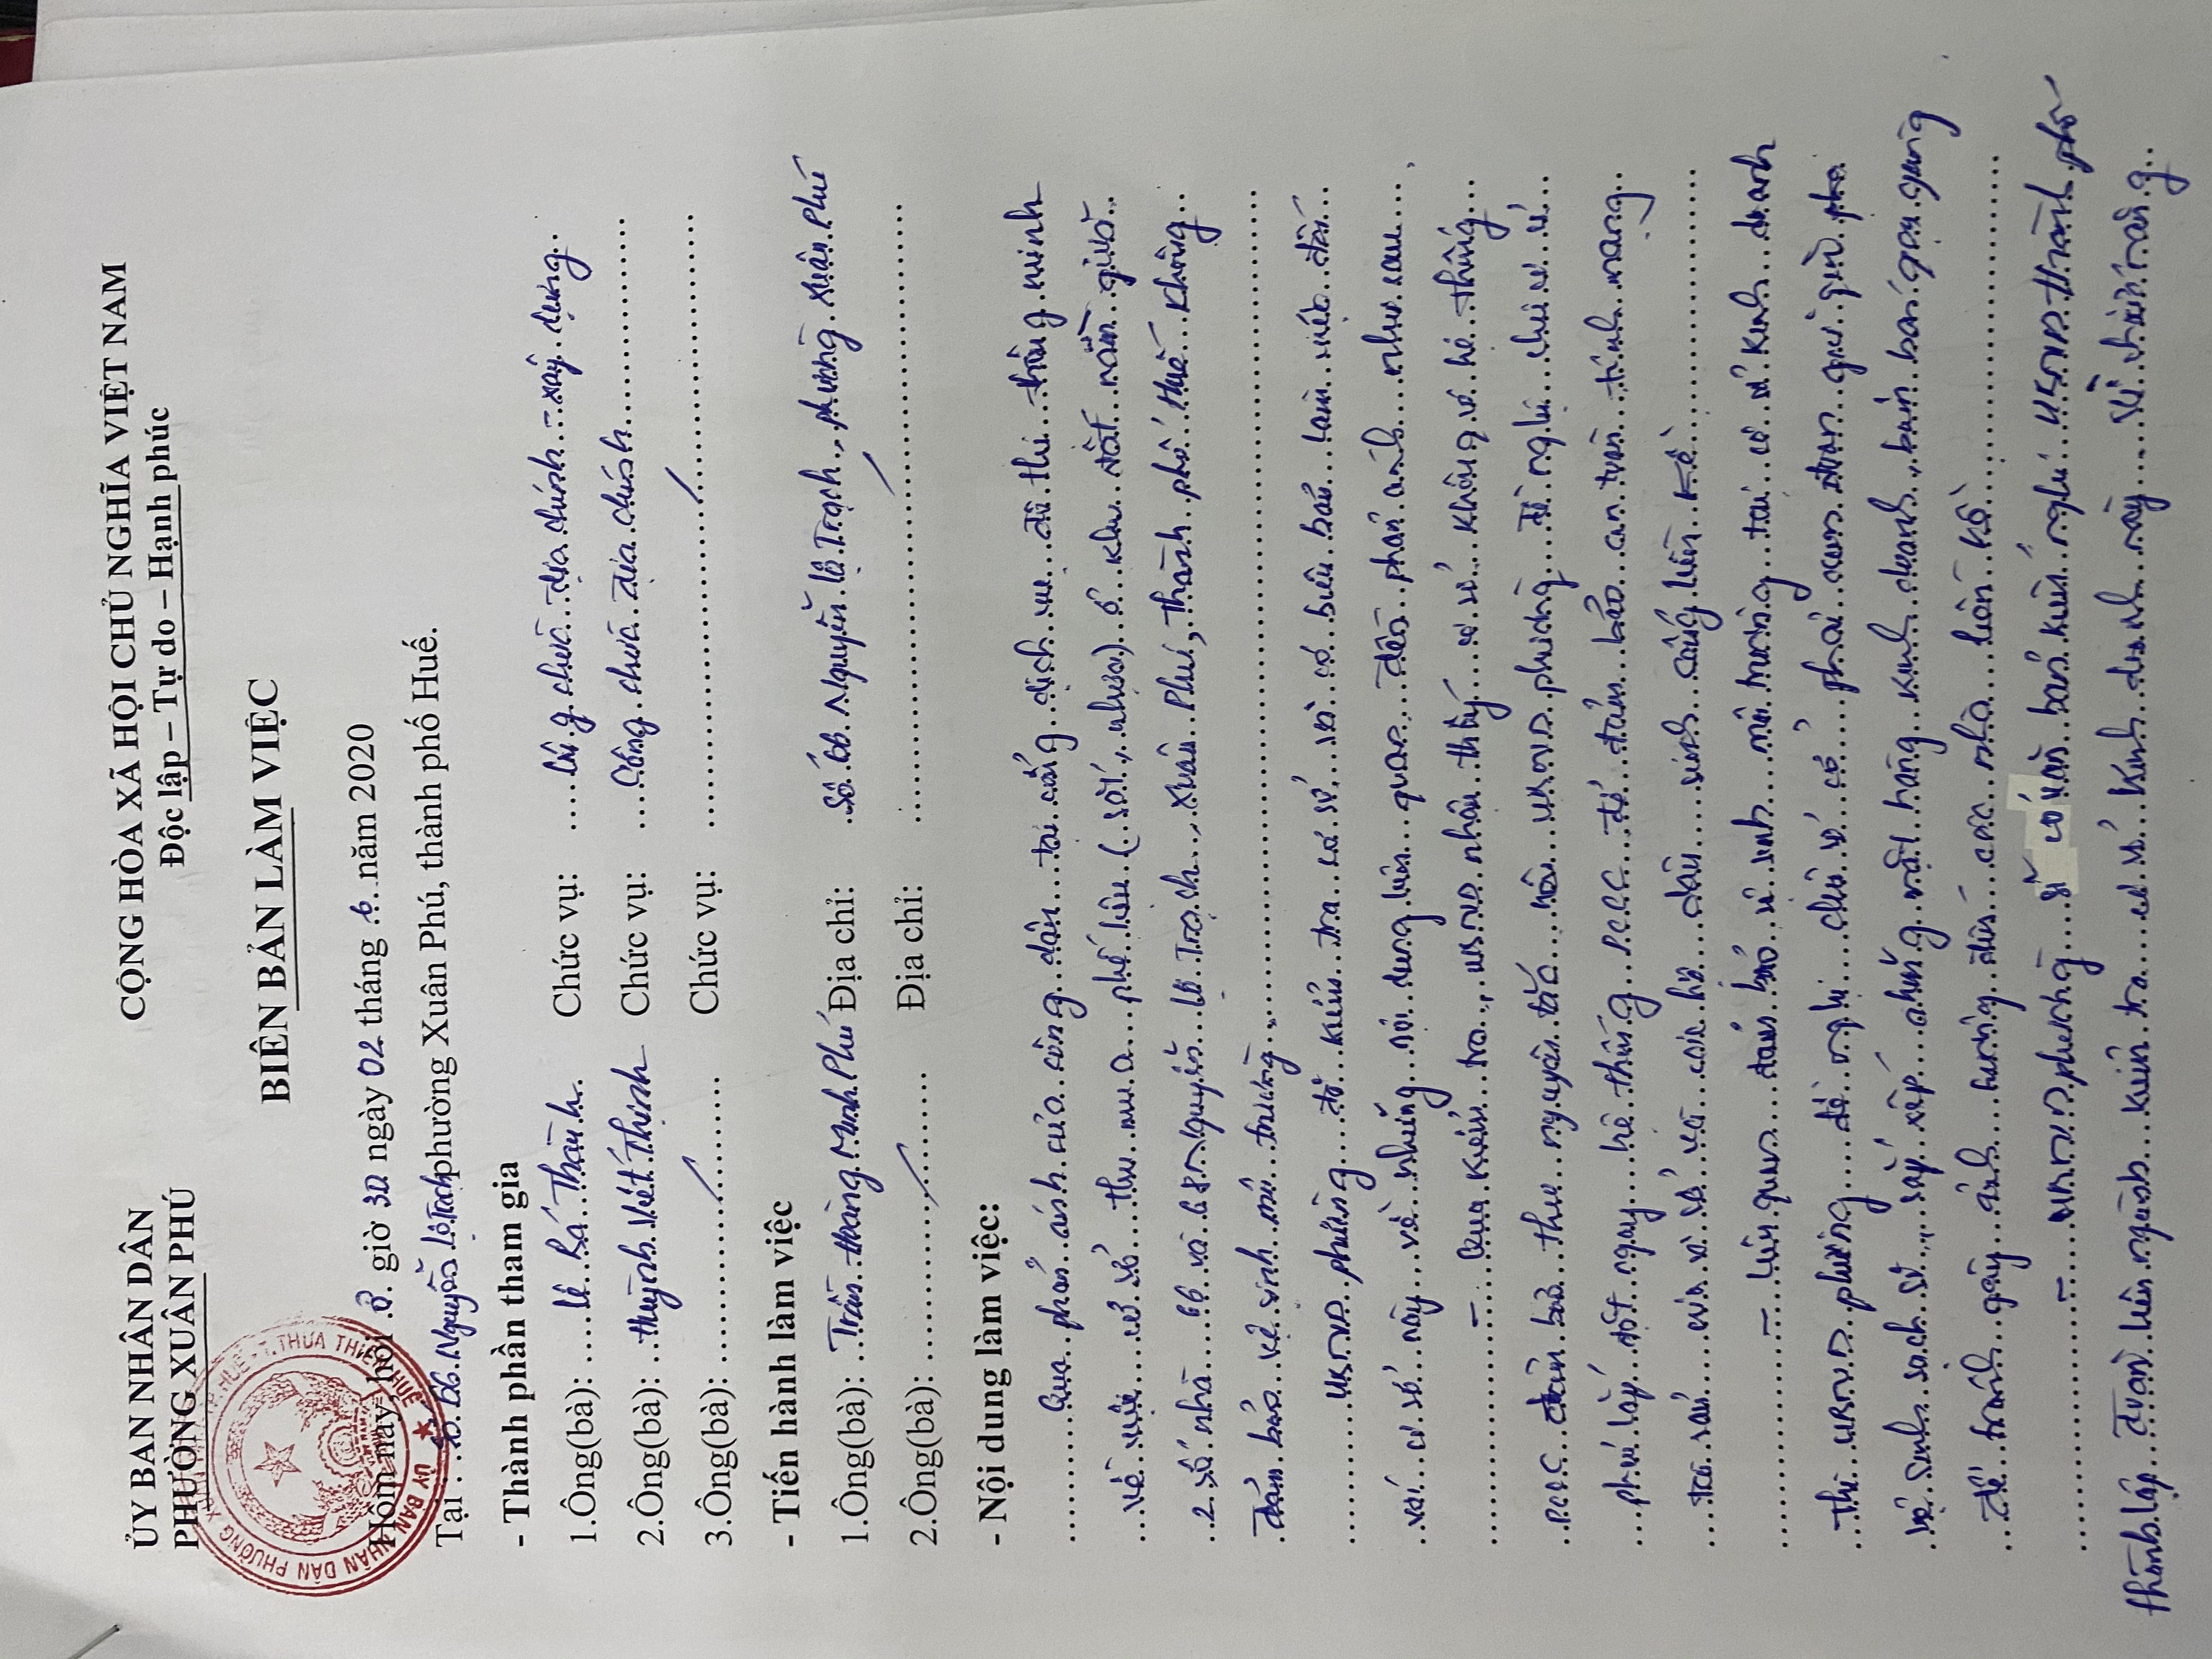 ỦY BAN NHÂN DÂN
PHƯỜNG XUÂN PHÚ
CỘNG HÒA XÃ HỘI CHỦ NGHĨA VIỆT NAM
Độc lập – Tự do – Hạnh phúc
BIÊN BẢN LÀM VIỆC
Hôm nay, hồi 8 giờ 30 ngày 02 tháng 6 năm 2020
Tại số 66 Nguyễn Lộ Trạch phường Xuân Phú, thành phố Huế.
- Thành phần tham gia
1.Ông(bà): Lê Bá Thành Chức vụ: Công chức địa chính - xây dựng
2.Ông(bà): Huỳnh Viết Thịnh Chức vụ: Công chức địa chính
3.Ông(bà): Chức vụ:
- Tiến hành làm việc
1.Ông(bà): Trần Hoàng Minh Phú Địa chỉ: Số 66 Nguyễn Lộ Trạch, phường Xuân Phú
2.Ông(bà): Địa chỉ:
- Nội dung làm việc:
Qua phản ánh của công dân tại cổng dịch vụ đô thị thông minh
về việc cơ sở thu mua phế liệu (sắt, nhựa) ở khu đất nằm giữa
2 số nhà 66 và 68 Nguyễn Lộ Trạch, Xuân Phú, thành phố Huế không
đảm bảo vệ sinh môi trường.
UBND phường đã kiểm tra cơ sở và có buổi làm việc đối
với cơ sở này về những nội dung liên quan đến phản ánh như sau
- Qua kiểm tra, UBND nhận thấy cơ sở không có hệ thống
PCCC đảm bảo theo nguyên tắc nên UBND phường đề nghị chủ cơ sở
phải lắp đặt ngay hệ thống PCCC để đảm bảo an toàn tính mạng
tài sản của cơ sở và các hộ dân sinh sống liền kề
- Liên quan đảm bảo vệ sinh môi trường tại cơ sở kinh doanh
thì UBND phường đề nghị chủ cơ sở phải dọn quét
vệ sinh sạch sẽ, sắp xếp những mặt hàng kinh doanh, buôn bán gọn gàng
để tránh gây ảnh hưởng đến các nhà liền kề
- UBND phường sẽ có văn bản kiến nghị UBND thành phố
thành lập đoàn liên ngành kiểm tra cơ sở kinh doanh này